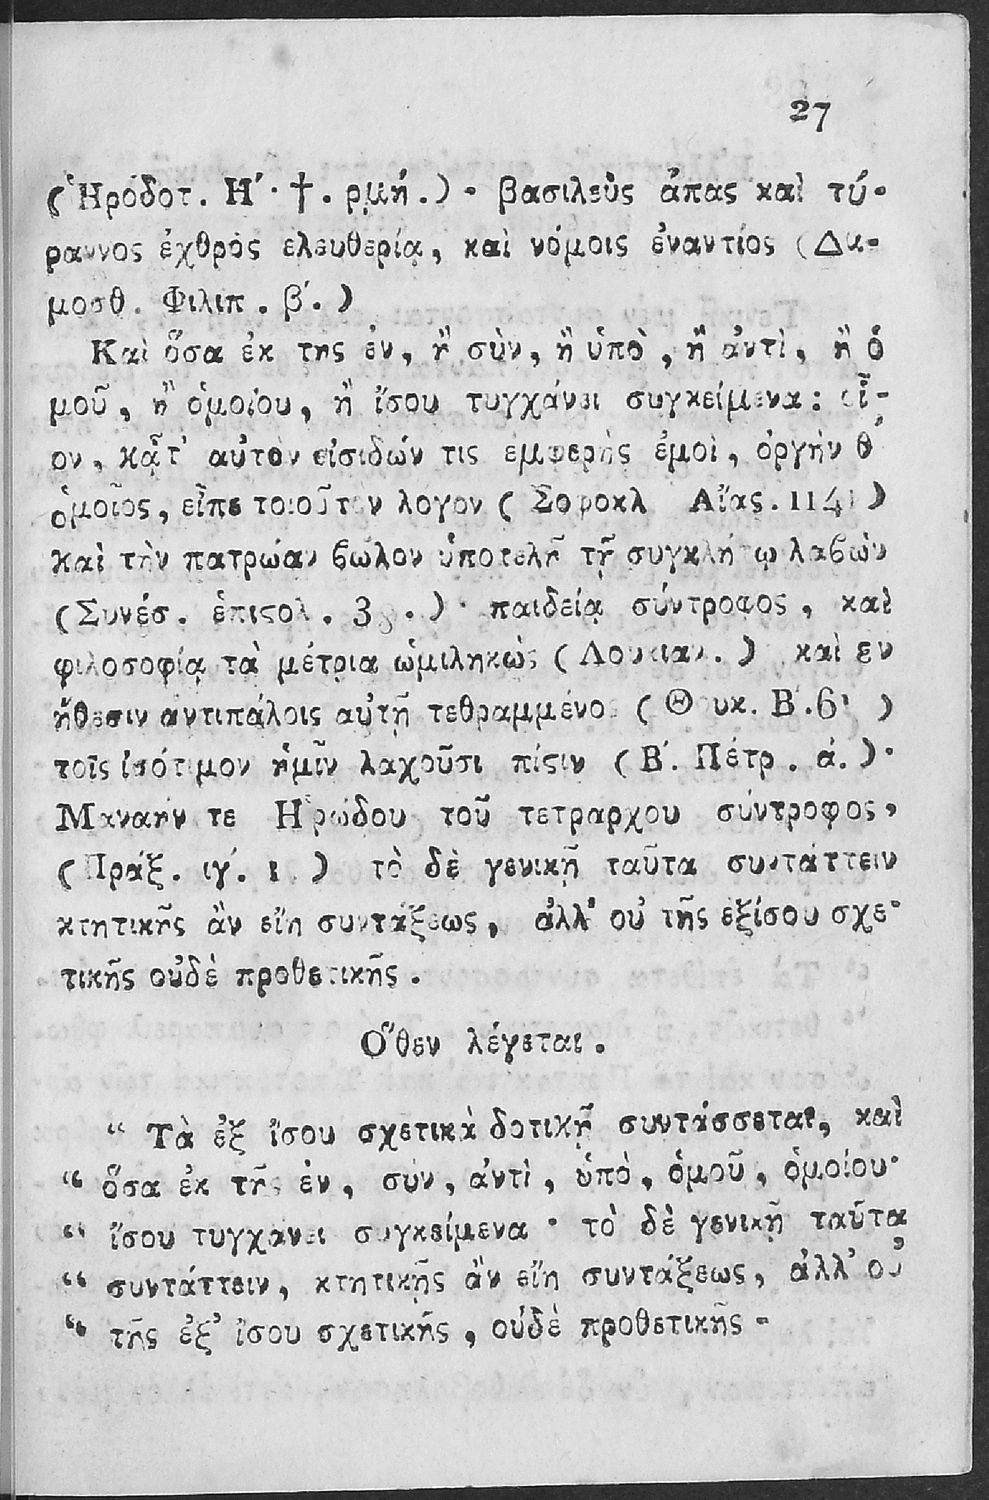 27
(Ἡρόδοτ. Η΄· †. ρμή.) · βασιλεὺς ἅπας καὶ τύ-
ραννος ἐχθρὸς ελευθερίᾳ, καὶ νόμοις ἐναντίος (Δη-
μοσθ. Φιλιπ. β΄.)
Καὶ ὅσα ἐκ της ἐν, ἢ σὺν, ἢ ὑπὸ, ἢ ἀντὶ, ἢ ὁ
μοῦ, ἢ ὁμοίου, ἢ ἴσου τυγχάνει συγκείμενα: οἷ-
ον, κᾆτ' αὐτὸν εἰσιδών τις ἐμφερὴς ἐμοὶ, ὀργήν θ'
ὁμοῖος, εἶπε τοιοῦτον λογον (Σοφοκλ Αἴας. 114 )
καὶ τὴν πατρώαν βῶλον ὑποτελῆ τῇ συγκλήτῳ λαβὼν
(Συνέσ. ἐπιςολ. .)· παιδείᾳ σύντροφος, καὶ
φιλοσοφίᾳ τὰ μέτρια ὡμιληκὼς (Λουκιαν.) καὶ εν
ἤθεσιν ἀντιπάλοις αὐτῇ τεθραμμένος (Θουκ. Β΄. )
τοῖς ἰσότιμον ἡμῖν λαχοῦσι πίςιν (Β΄. Πέτρ. ά.)·
Μαναὴν τε Ἡρώδου τοῦ τετραρχου σύντροφος,
(Πράξ. ιγ΄. 1.) τὸ δὲ γενικῇ ταῦτα συντάττειν
κτητικῆς ἂν εἴη συντάξεως, ἀλλ' οὐ τῆς ἐξίσου σχε-
τικῆς οὐδὲ προθετικῆς.
Ὅθεν λέγεται.
“ Τὰ ἐξ ἴσου σχετικὰ δοτικῇ συντάσσεται, καὶ
“ ὅσα ἐκ τῆς ἐν, σὺν, ἀντὶ, ὑπὸ, ὁμοῦ, ὁμοίου·
“ ἴσου τυγχανει συγκείμενα · τὸ δὲ γενικῇ ταῦτα
“ συντάττειν, κτητικῆς ἂν εἴη συντάξεως, ἀλλ' οὐ
“ τῆς ἐξ' ἴσου σχετικῆς, οὐδὲ προθετικῆς -